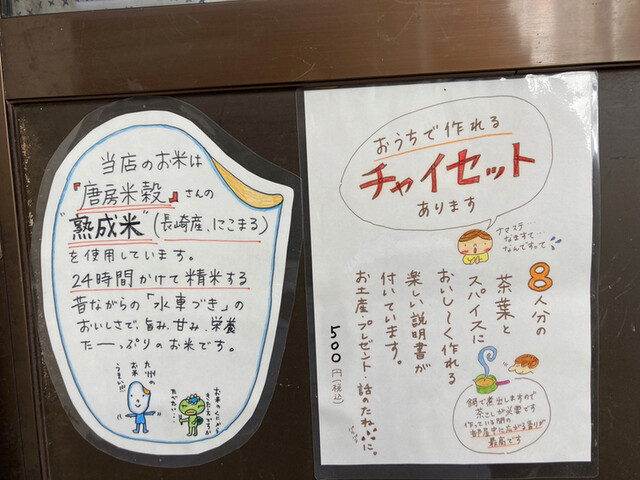 当店のお米は
『唐房米穀』さんの
"熟成米"(長崎産、にこまる)
を使用しています。
24時間かけて精米する
昔ながらの「水車づき」の
おいしさで、旨み、甘み、栄養
たーっぷりのお米です。
九州の
お米
うまい!!!
たべたい…
おうちで作れる
チャイセット
あります
ナマステ…
なますて…
なんですって
8人分の
茶葉と
スパイスに
おいし〜く作れる
楽しい説明書が
付いています。
お土産、プレゼント、話のたねに。
500円(税込)
鍋で煮出しますので
茶こしが必要です
作っている間の
お部屋中に広がる香りが
最高です